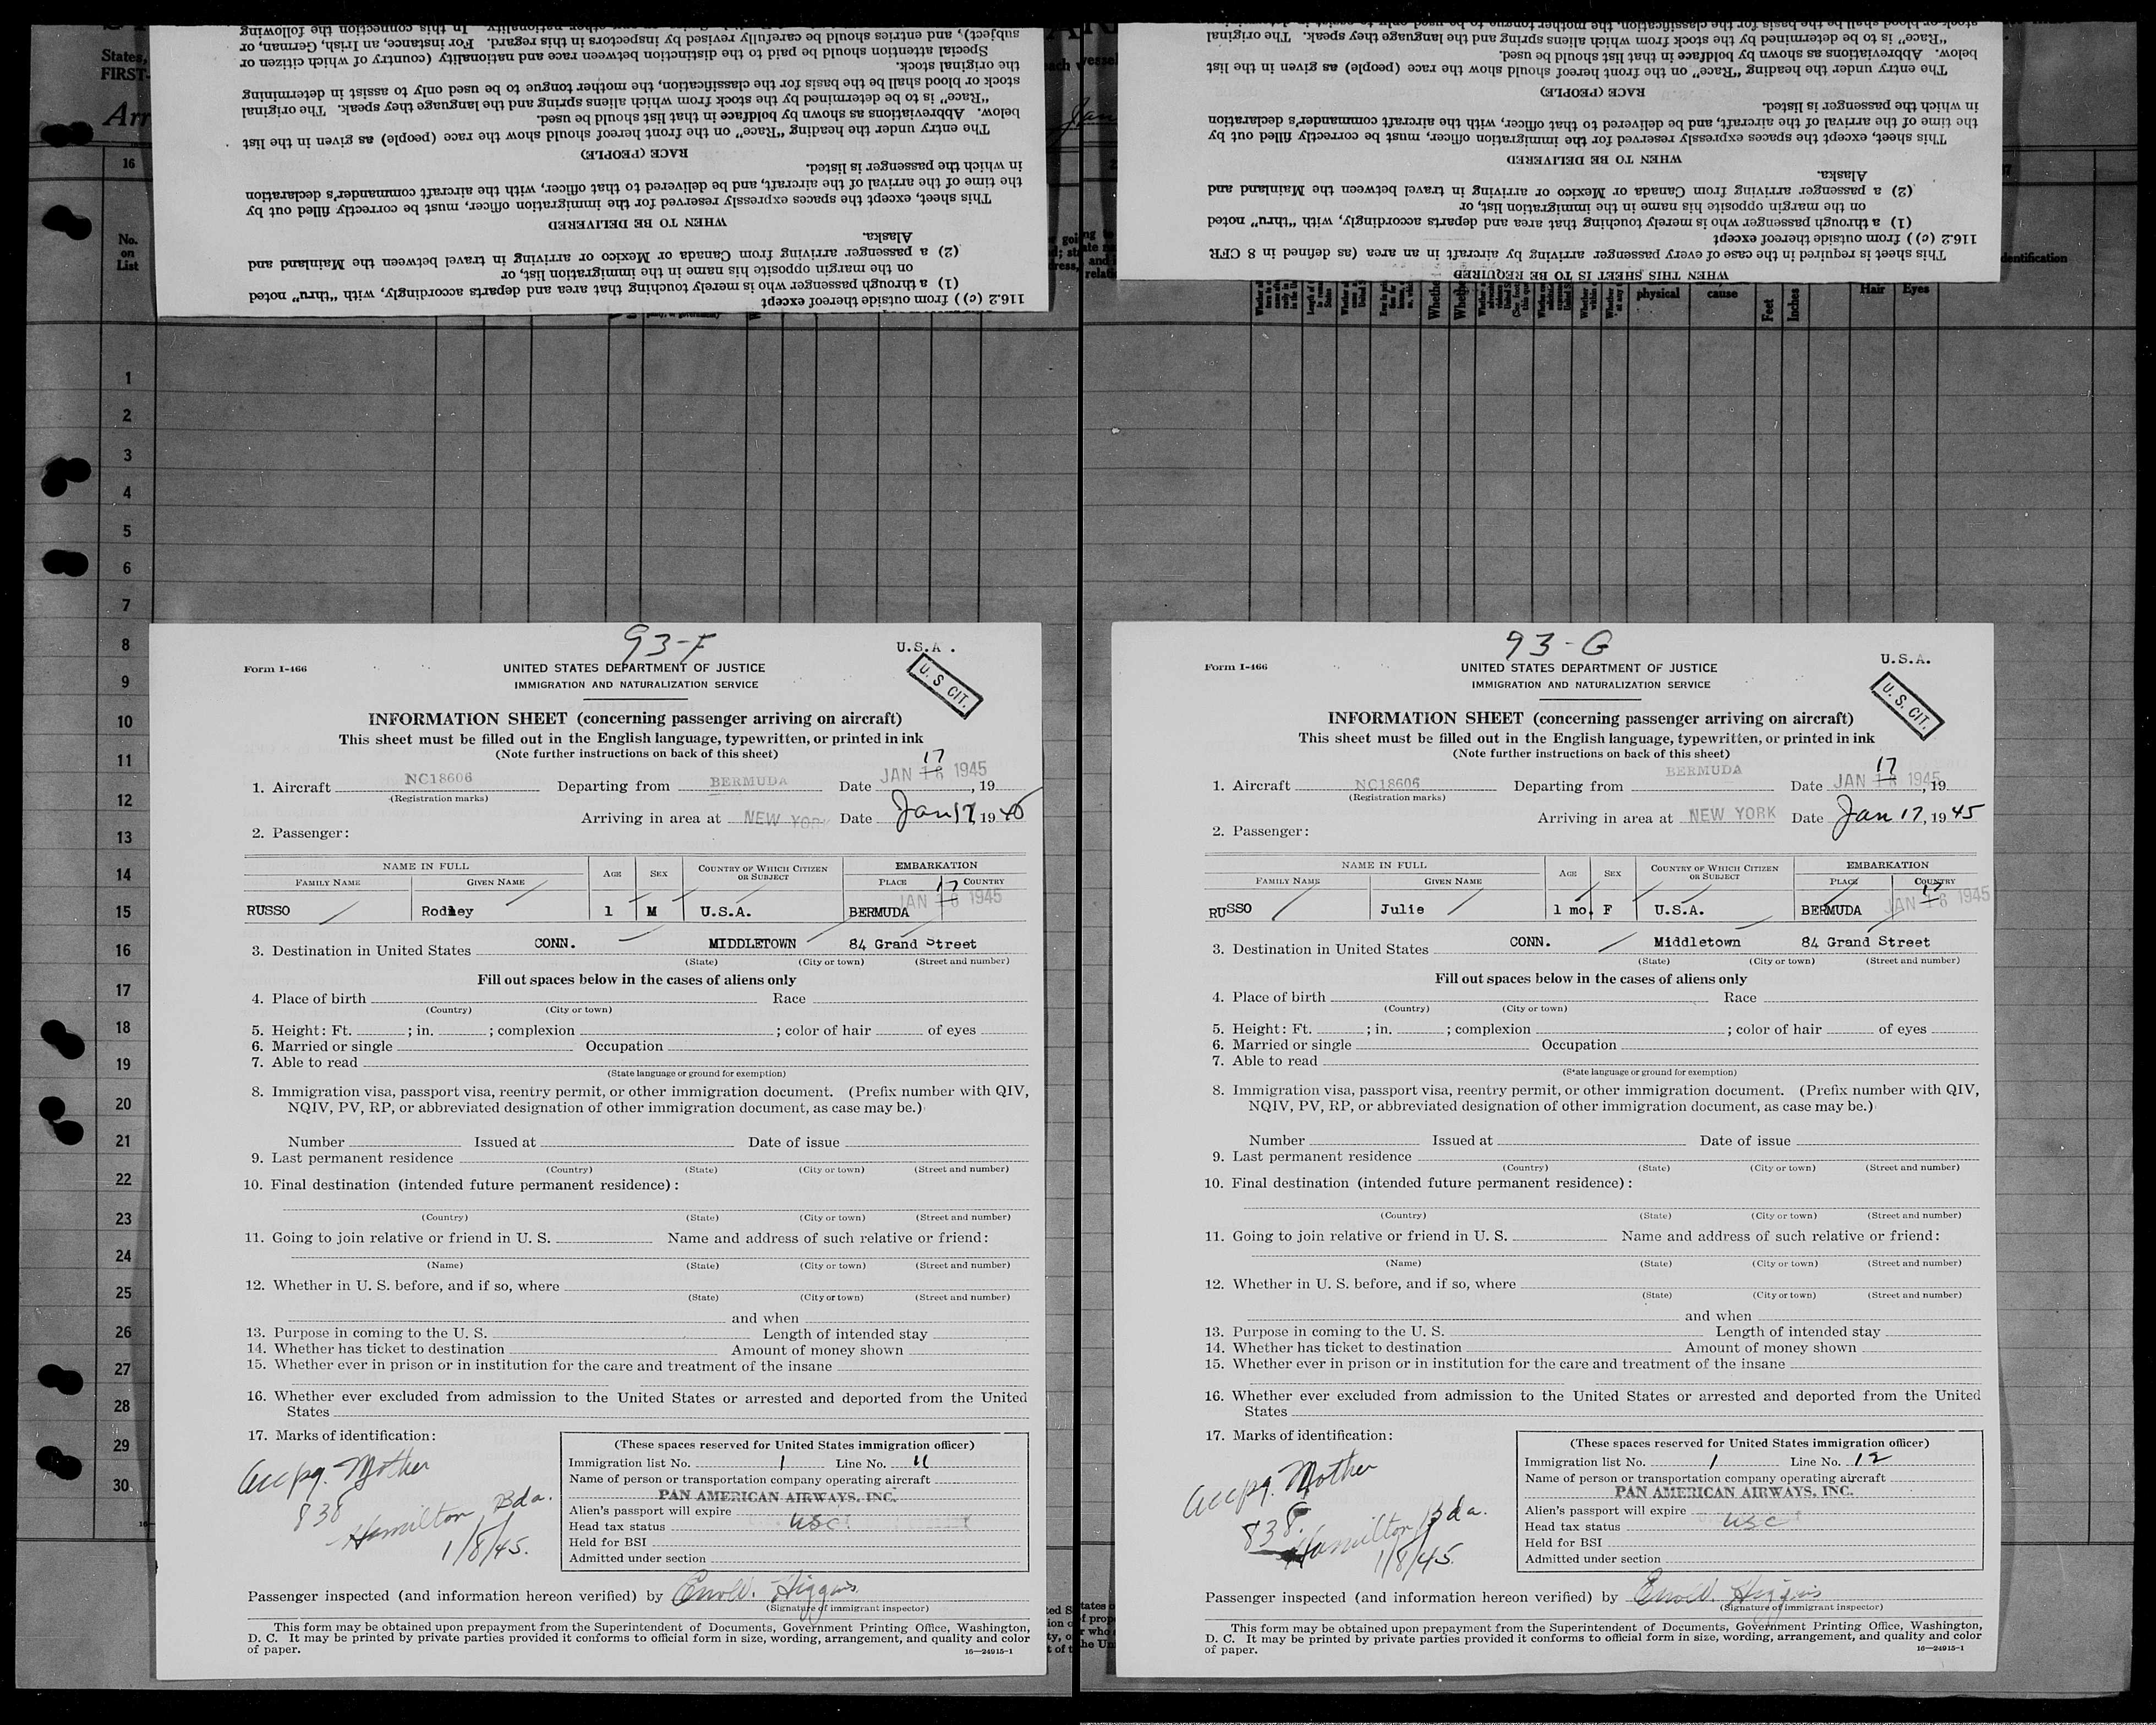 States,
FIRST-
Arr
16
No.
on
List
subject), and entries should be carefully revised by inspectors in this regard. For instance, an Irish, German, or
Special attention should be paid to the distinction between race and nationality (country of which citizen or
the original stock.
stock or blood shall be the basis for the classification, the mother tongue to be used only to assist in determining
"Race" is to be determined by the stock from which aliens spring and the language they speak. The original
below. Abbreviations as shown by boldface in that list should be used.
The entry under the heading "Race" on the front hereof should show the race (people) as given in the list
RACE (PEOPLE)
in which the passenger is listed.
the time of the arrival of the aircraft, and be delivered to that officer, with the aircraft commander's declaration
This sheet, except the spaces expressly reserved for the immigration officer, must be correctly filled out by
WHEN TO BE DELIVERED
Alaska.
(2) a passenger arriving from Canada or Mexico or arriving in travel between the Mainland and
on the margin opposite his name in the immigration list, or
(1) a through passenger who is merely touching that area and departs accordingly, with "thru" noted
116.2 (c)) from outside thereof except
1
2
3
4
5
6
7
8
9
10
11
12
13
14
15
16
17
18
19
20
21
22
23
24
25
26
27
28
29
30
93-F
U.S.A.
Form I-466
UNITED STATES DEPARTMENT OF JUSTICE
IMMIGRATION AND NATURALIZATION SERVICE
U. S. CIT.
INFORMATION SHEET (concerning passenger arriving on aircraft)
This sheet must be filled out in the English language, typewritten, or printed in ink
(Note further instructions on back of this sheet)
17
1. Aircraft NC18606 Departing from BERMUDA Date JAN 16 1945, 19
(Registration marks)
Arriving in area at NEW YORK Date Jan 17, 1945
2. Passenger:
NAME IN FULL AGE SEX COUNTRY OF WHICH CITIZEN OR SUBJECT EMBARKATION
FAMILY NAME GIVEN NAME PLACE COUNTRY
17
JAN 16 1945
RUSSO Rodney 1 M U.S.A. BERMUDA
3. Destination in United States CONN. MIDDLETOWN 84 Grand Street
(State) (City or town) (Street and number)
Fill out spaces below in the cases of aliens only
4. Place of birth Race
(Country) (City or town)
5. Height: Ft. ; in. ; complexion ; color of hair of eyes
6. Married or single Occupation
7. Able to read
(State language or ground for exemption)
8. Immigration visa, passport visa, reentry permit, or other immigration document. (Prefix number with QIV,
NQIV, PV, RP, or abbreviated designation of other immigration document, as case may be.)
Number Issued at Date of issue
9. Last permanent residence
(Country) (State) (City or town) (Street and number)
10. Final destination (intended future permanent residence):
(Country) (State) (City or town) (Street and number)
11. Going to join relative or friend in U. S. Name and address of such relative or friend:
(Name) (State) (City or town) (Street and number)
12. Whether in U. S. before, and if so, where
(State) (City or town) (Street and number)
and when
13. Purpose in coming to the U. S. Length of intended stay
14. Whether has ticket to destination Amount of money shown
15. Whether ever in prison or in institution for the care and treatment of the insane
16. Whether ever excluded from admission to the United States or arrested and deported from the United
States
17. Marks of identification:
Accpg. Mother
838
Hamilton Bda.
1/8/45.
(These spaces reserved for United States immigration officer)
Immigration list No. 1 Line No. 11
Name of person or transportation company operating aircraft
PAN AMERICAN AIRWAYS, INC.
Alien's passport will expire
Head tax status USC
Held for BSI
Admitted under section
Passenger inspected (and information hereon verified) by Higgins
(Signature of immigrant inspector)
This form may be obtained upon prepayment from the Superintendent of Documents, Government Printing Office, Washington,
D. C. It may be printed by private parties provided it conforms to official form in size, wording, arrangement, and quality and color
of paper.
16—24915-1
"Race" is to be determined by the stock from which aliens spring and the language they speak. The original
below. Abbreviations as shown by boldface in that list should be used.
The entry under the heading "Race" on the front hereof should show the race (people) as given in the list
RACE (PEOPLE)
in which the passenger is listed.
the time of the arrival of the aircraft, and be delivered to that officer, with the aircraft commander's declaration
This sheet, except the spaces expressly reserved for the immigration officer, must be correctly filled out by
WHEN TO BE DELIVERED
Alaska.
(2) a passenger arriving from Canada or Mexico or arriving in travel between the Mainland and
on the margin opposite his name in the immigration list, or
(1) a through passenger who is merely touching that area and departs accordingly, with "thru" noted
116.2 (c)) from outside thereof except
This sheet is required in the case of every passenger arriving by aircraft in an area (as defined in 8 CFR
WHEN THIS SHEET IS TO BE REQUIRED
physical
cause
Feet
Inches
Hair
Eyes
93-G
U.S.A.
Form I-466
UNITED STATES DEPARTMENT OF JUSTICE
IMMIGRATION AND NATURALIZATION SERVICE
U. S. CIT.
INFORMATION SHEET (concerning passenger arriving on aircraft)
This sheet must be filled out in the English language, typewritten, or printed in ink
(Note further instructions on back of this sheet)
17
1. Aircraft NC18606 Departing from BERMUDA Date JAN 16 1945, 19
(Registration marks)
Arriving in area at NEW YORK Date Jan 17, 1945
2. Passenger:
NAME IN FULL AGE SEX COUNTRY OF WHICH CITIZEN OR SUBJECT EMBARKATION
FAMILY NAME GIVEN NAME PLACE COUNTRY
17
JAN 16 1945
RUSSO Julie 1 mo. F U.S.A. BERMUDA
3. Destination in United States CONN. Middletown 84 Grand Street
(State) (City or town) (Street and number)
Fill out spaces below in the cases of aliens only
4. Place of birth Race
(Country) (City or town)
5. Height: Ft. ; in. ; complexion ; color of hair of eyes
6. Married or single Occupation
7. Able to read
(State language or ground for exemption)
8. Immigration visa, passport visa, reentry permit, or other immigration document. (Prefix number with QIV,
NQIV, PV, RP, or abbreviated designation of other immigration document, as case may be.)
Number Issued at Date of issue
9. Last permanent residence
(Country) (State) (City or town) (Street and number)
10. Final destination (intended future permanent residence):
(Country) (State) (City or town) (Street and number)
11. Going to join relative or friend in U. S. Name and address of such relative or friend:
(Name) (State) (City or town) (Street and number)
12. Whether in U. S. before, and if so, where
(State) (City or town) (Street and number)
and when
13. Purpose in coming to the U. S. Length of intended stay
14. Whether has ticket to destination Amount of money shown
15. Whether ever in prison or in institution for the care and treatment of the insane
16. Whether ever excluded from admission to the United States or arrested and deported from the United
States
17. Marks of identification:
Accpg. Mother
838
Hamilton Bda.
1/8/45.
(These spaces reserved for United States immigration officer)
Immigration list No. 1 Line No. 12
Name of person or transportation company operating aircraft
PAN AMERICAN AIRWAYS, INC.
Alien's passport will expire
Head tax status USC
Held for BSI
Admitted under section
Passenger inspected (and information hereon verified) by Higgins
(Signature of immigrant inspector)
This form may be obtained upon prepayment from the Superintendent of Documents, Government Printing Office, Washington,
D. C. It may be printed by private parties provided it conforms to official form in size, wording, arrangement, and quality and color
of paper.
16—24915-1